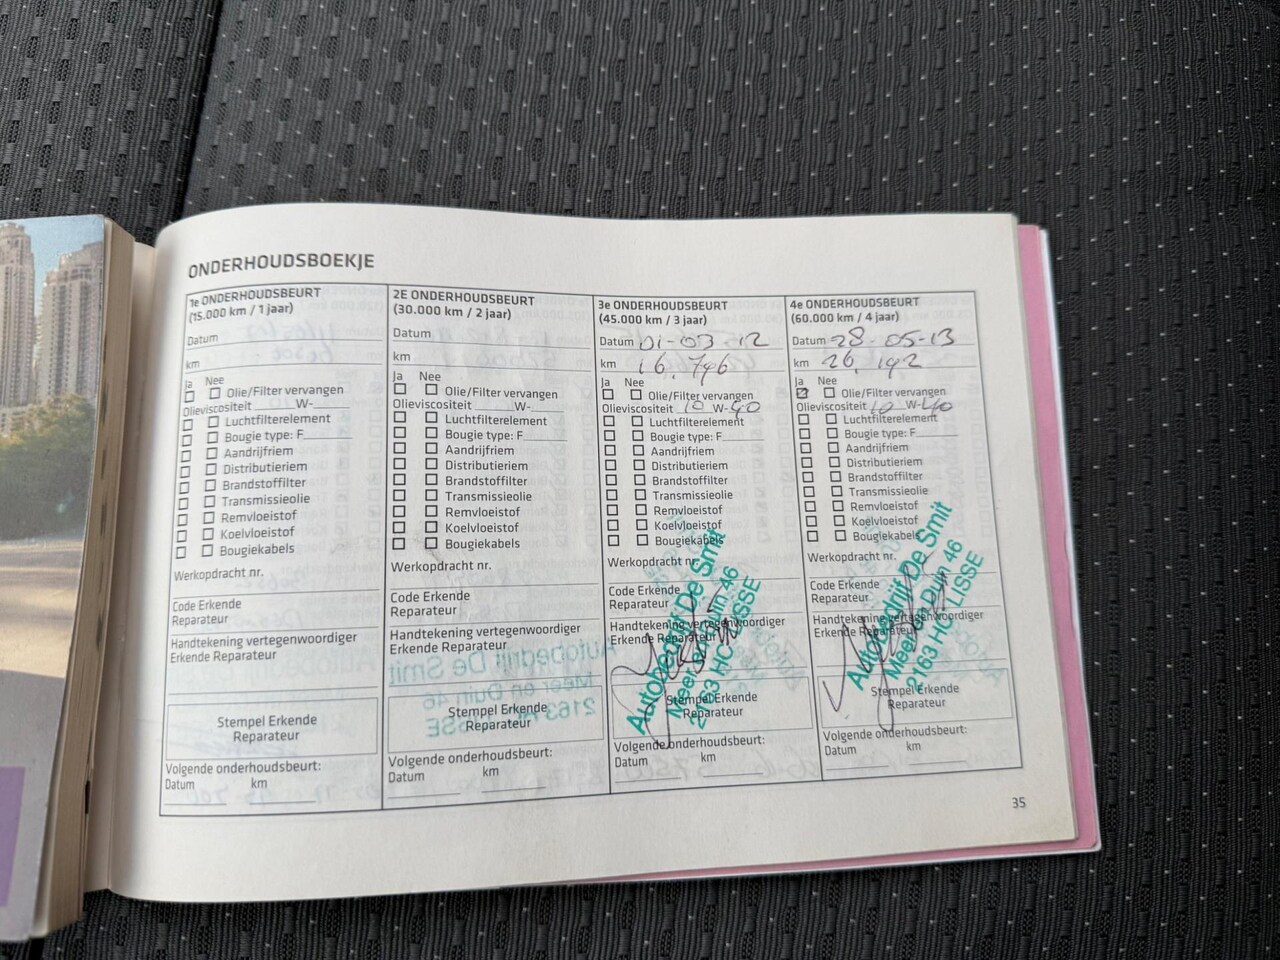 ONDERHOUDSBOEKJE
1e ONDERHOUDSBEURT
(15.000 km / 1 jaar)
Datum
km
Ja Nee
Olie/Filter vervangen
Olieviscositeit W-
Luchtfilterelement
Bougie type: F
Aandrijfriem
Distributieriem
Brandstoffilter
Transmissieolie
Remvloeistof
Koelvloeistof
Bougiekabels
Werkopdracht nr.
Code Erkende
Reparateur
Handtekening vertegenwoordiger
Erkende Reparateur
Stempel Erkende
Reparateur
Volgende onderhoudsbeurt:
Datum km
2E ONDERHOUDSBEURT
(30.000 km / 2 jaar)
Datum
km
Ja Nee
Olie/Filter vervangen
Olieviscositeit W-
Luchtfilterelement
Bougie type: F
Aandrijfriem
Distributieriem
Brandstoffilter
Transmissieolie
Remvloeistof
Koelvloeistof
Bougiekabels
Werkopdracht nr.
Code Erkende
Reparateur
Handtekening vertegenwoordiger
Erkende Reparateur
Stempel Erkende
Reparateur
Volgende onderhoudsbeurt:
Datum km
3e ONDERHOUDSBEURT
(45.000 km / 3 jaar)
Datum 01-03-12
km 16.796
Ja Nee
Olie/Filter vervangen
Olieviscositeit 10 W-40
Luchtfilterelement
Bougie type: F
Aandrijfriem
Distributieriem
Brandstoffilter
Transmissieolie
Remvloeistof
Koelvloeistof
Bougiekabels
Werkopdracht nr.
Code Erkende
Reparateur
Handtekening vertegenwoordiger
Erkende Reparateur
Autobedrijf De Smit
Meer en Duin 46
2163 HC LISSE
Stempel Erkende
Reparateur
Volgende onderhoudsbeurt:
Datum km
4e ONDERHOUDSBEURT
(60.000 km / 4 jaar)
Datum 28-05-13
km 26.192
Ja Nee
Olie/Filter vervangen
Olieviscositeit 10 W-40
Luchtfilterelement
Bougie type: F
Aandrijfriem
Distributieriem
Brandstoffilter
Transmissieolie
Remvloeistof
Koelvloeistof
Bougiekabels
Werkopdracht nr.
Code Erkende
Reparateur
Handtekening vertegenwoordiger
Erkende Reparateur
Autobedrijf De Smit
Meer en Duin 46
2163 HC LISSE
Stempel Erkende
Reparateur
Volgende onderhoudsbeurt:
Datum km
35